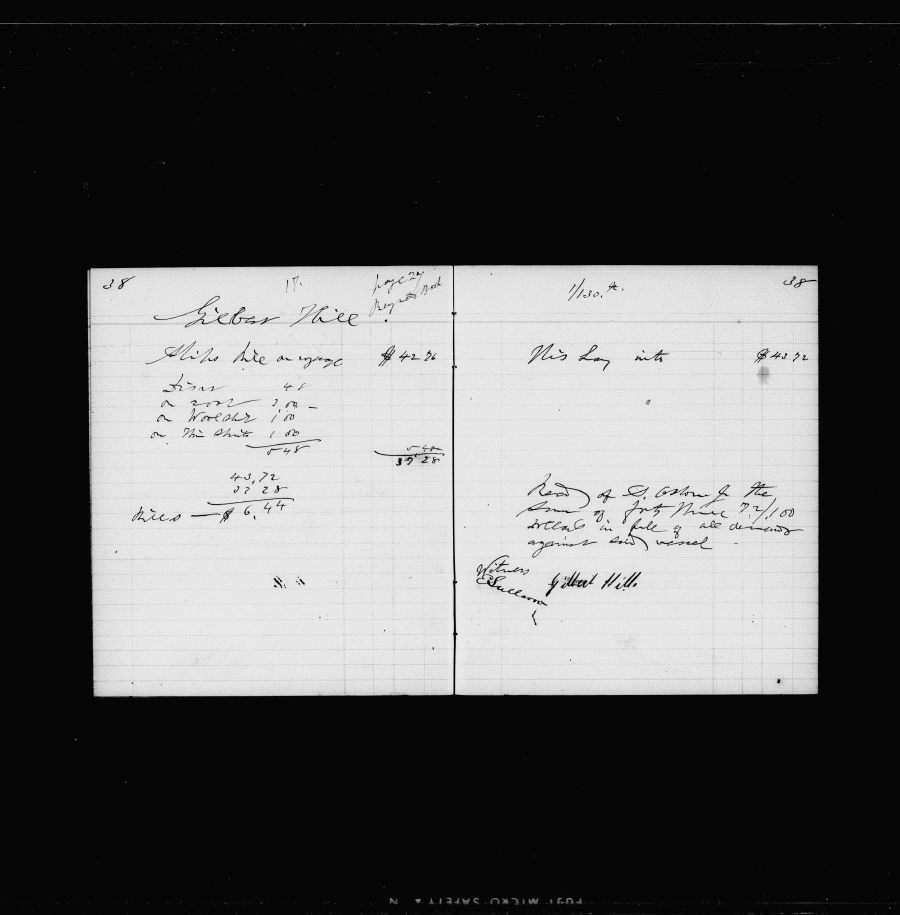 38
17.
page 27
Book
Gilbert Hill
Ships bill on voyage $ 42 76
48
on 3 00
on 1 00
on Thin Shirts 1 00
5 48
5 48
37 28
43,72
37 28
$ 6,44
1/130.th.
38
His Lay $ 43 72
Recd of G. the
Sum of forty three 72/100
dollars in full of all demands
against said vessel
Witness
Gilbert Hill
FUJI MICRO SAFETY N